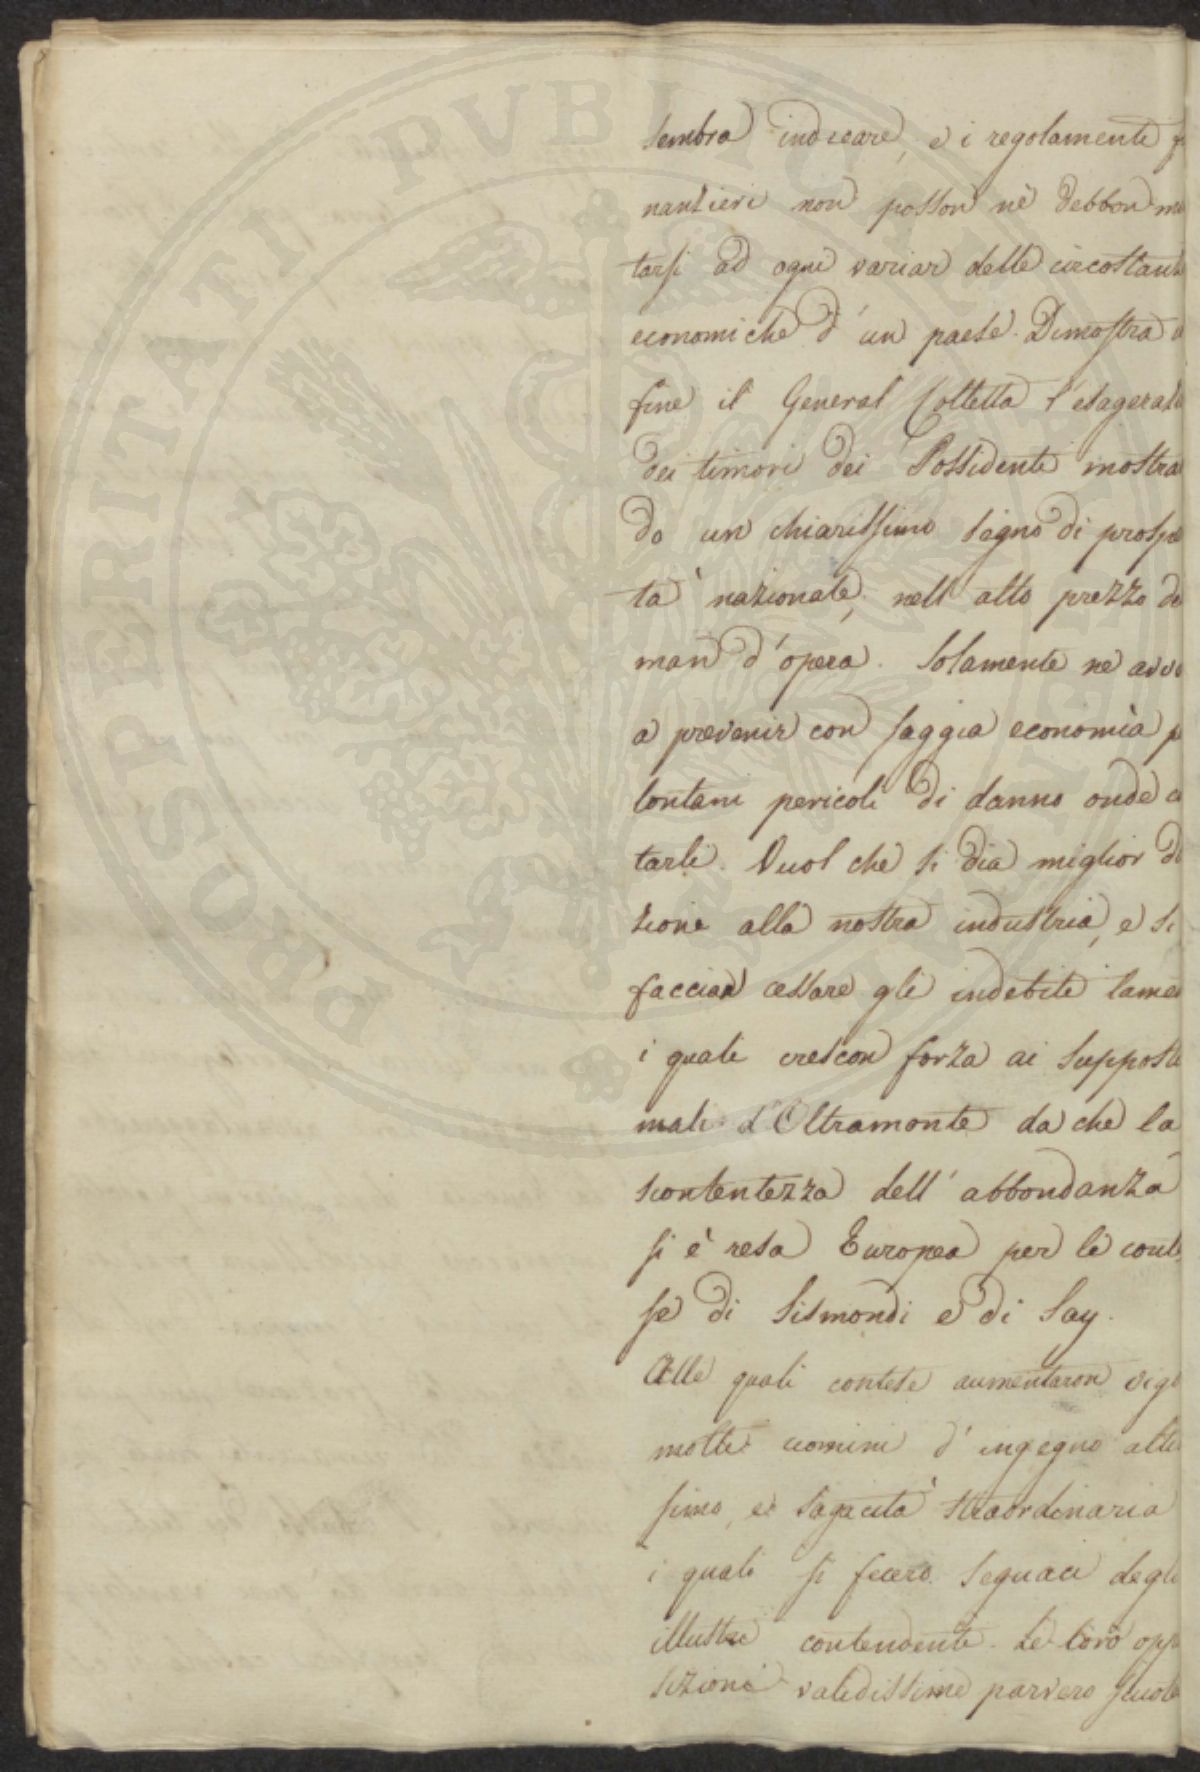 PROSPERITATI PVBLICAE
sembra indicare, e i regolamenti fi
nanzieri non posson nè debbon mu
tarsi ad ogni variar delle circostanz
economiche d'un paese. Dimostra in
fine il General Colletta l'esagerato
dei timori dei Possidenti mostra
do un chiarissimo segno di prospe
tà nazionale, nell'alto prezzo de
man d'opera. Solamente ne avve
a prevenir con saggia economia p
lontani pericoli di danno onde e
tarli. Vuol che si dia miglior di
zione alla nostra industria, e si
faccian cessare gli indebiti lamen
i quali crescon forza ai supposti
mali d'Oltramonte da che la
scontentezza dell'abbondanza
si è resa Europea per le conte
se di Sismondi e di Say.
Alle quali contese aumentaron vigo
molti uomini d'ingegno altis
simo, e sagacità straordinaria
i quali si fecero seguaci degli
illustri contendenti. Le loro oppo
sizioni validissime parvero scuole